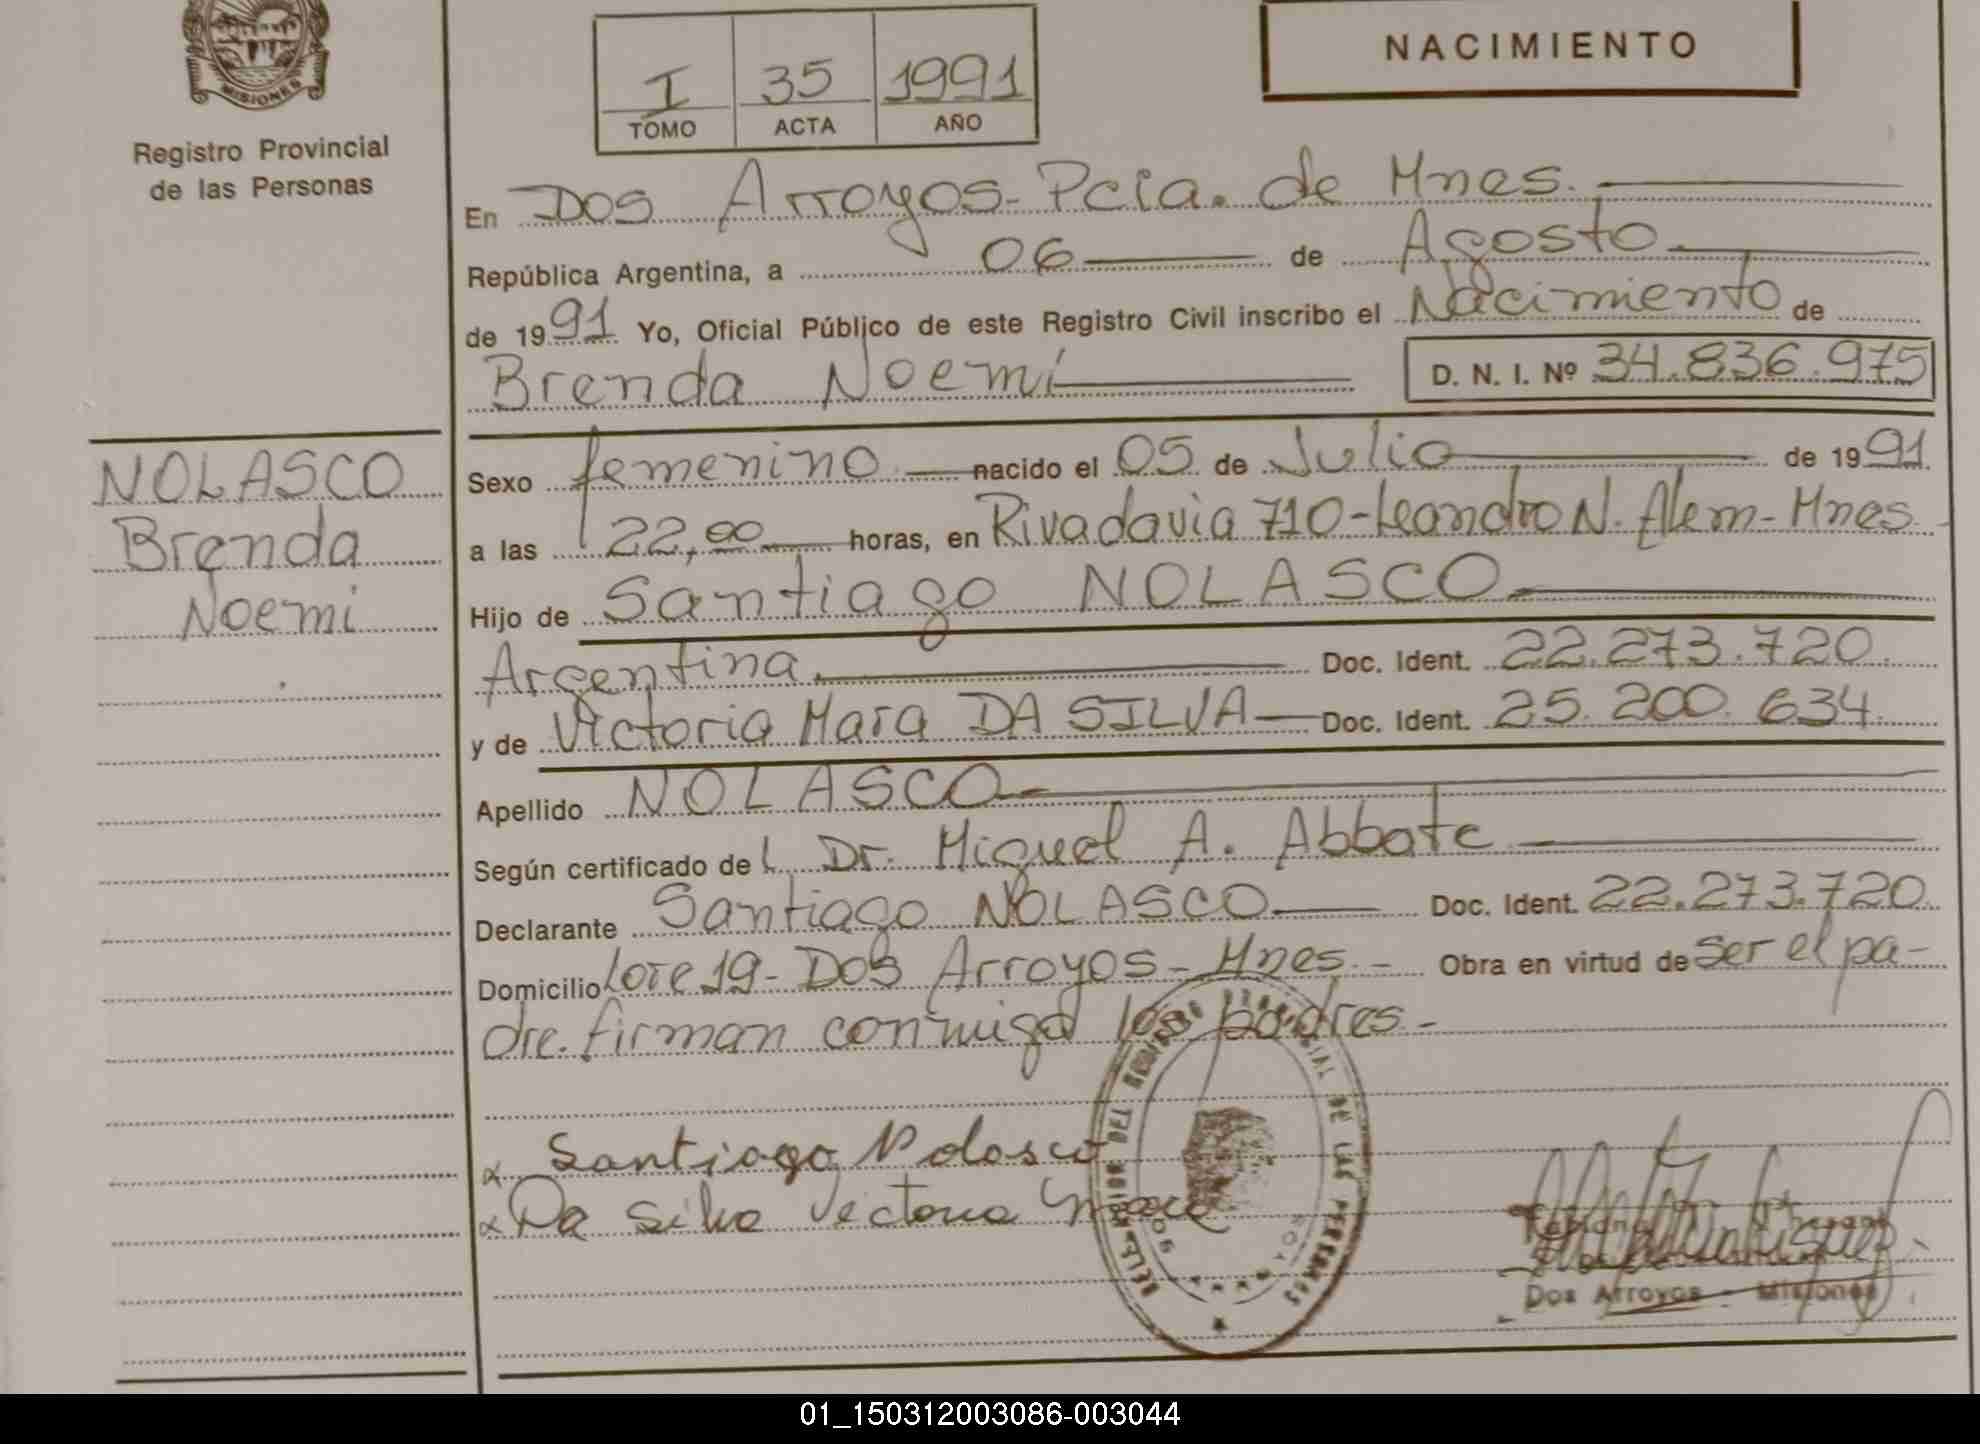 MISIONES
Registro Provincial
de las Personas
I 35 1991
TOMO ACTA AÑO
NACIMIENTO
En Dos Arroyos - Pcia. de Mnes.
República Argentina, a 06 de Agosto
de 1991 Yo, Oficial Público de este Registro Civil inscribo el Nacimiento de
Brenda Noemí D. N. I. Nº 34.836.975
NOLASCO
Brenda
Noemi
Sexo femenino nacido el 05 de Julio de 1991
a las 22,00 horas, en Rivadavia 710 - Leandro N. Alem - Mnes.
Hijo de Santiago NOLASCO
Argentina Doc. Ident. 22.273.720
y de Victoria Mara DA SILVA Doc. Ident. 25.200.634
Apellido NOLASCO
Según certificado del Dr. Miguel A. Abbate
Declarante Santiago NOLASCO Doc. Ident. 22.273.720
Domicilio Lote 19 - Dos Arroyos - Mnes. - Obra en virtud de ser el pa-
dre. firman conmigo los padres. -
Santiago Nolasco
Da Silva Victoria Mara
DE LAS PERSONAS
Dos Arroyos - Misiones
01_150312003086-003044